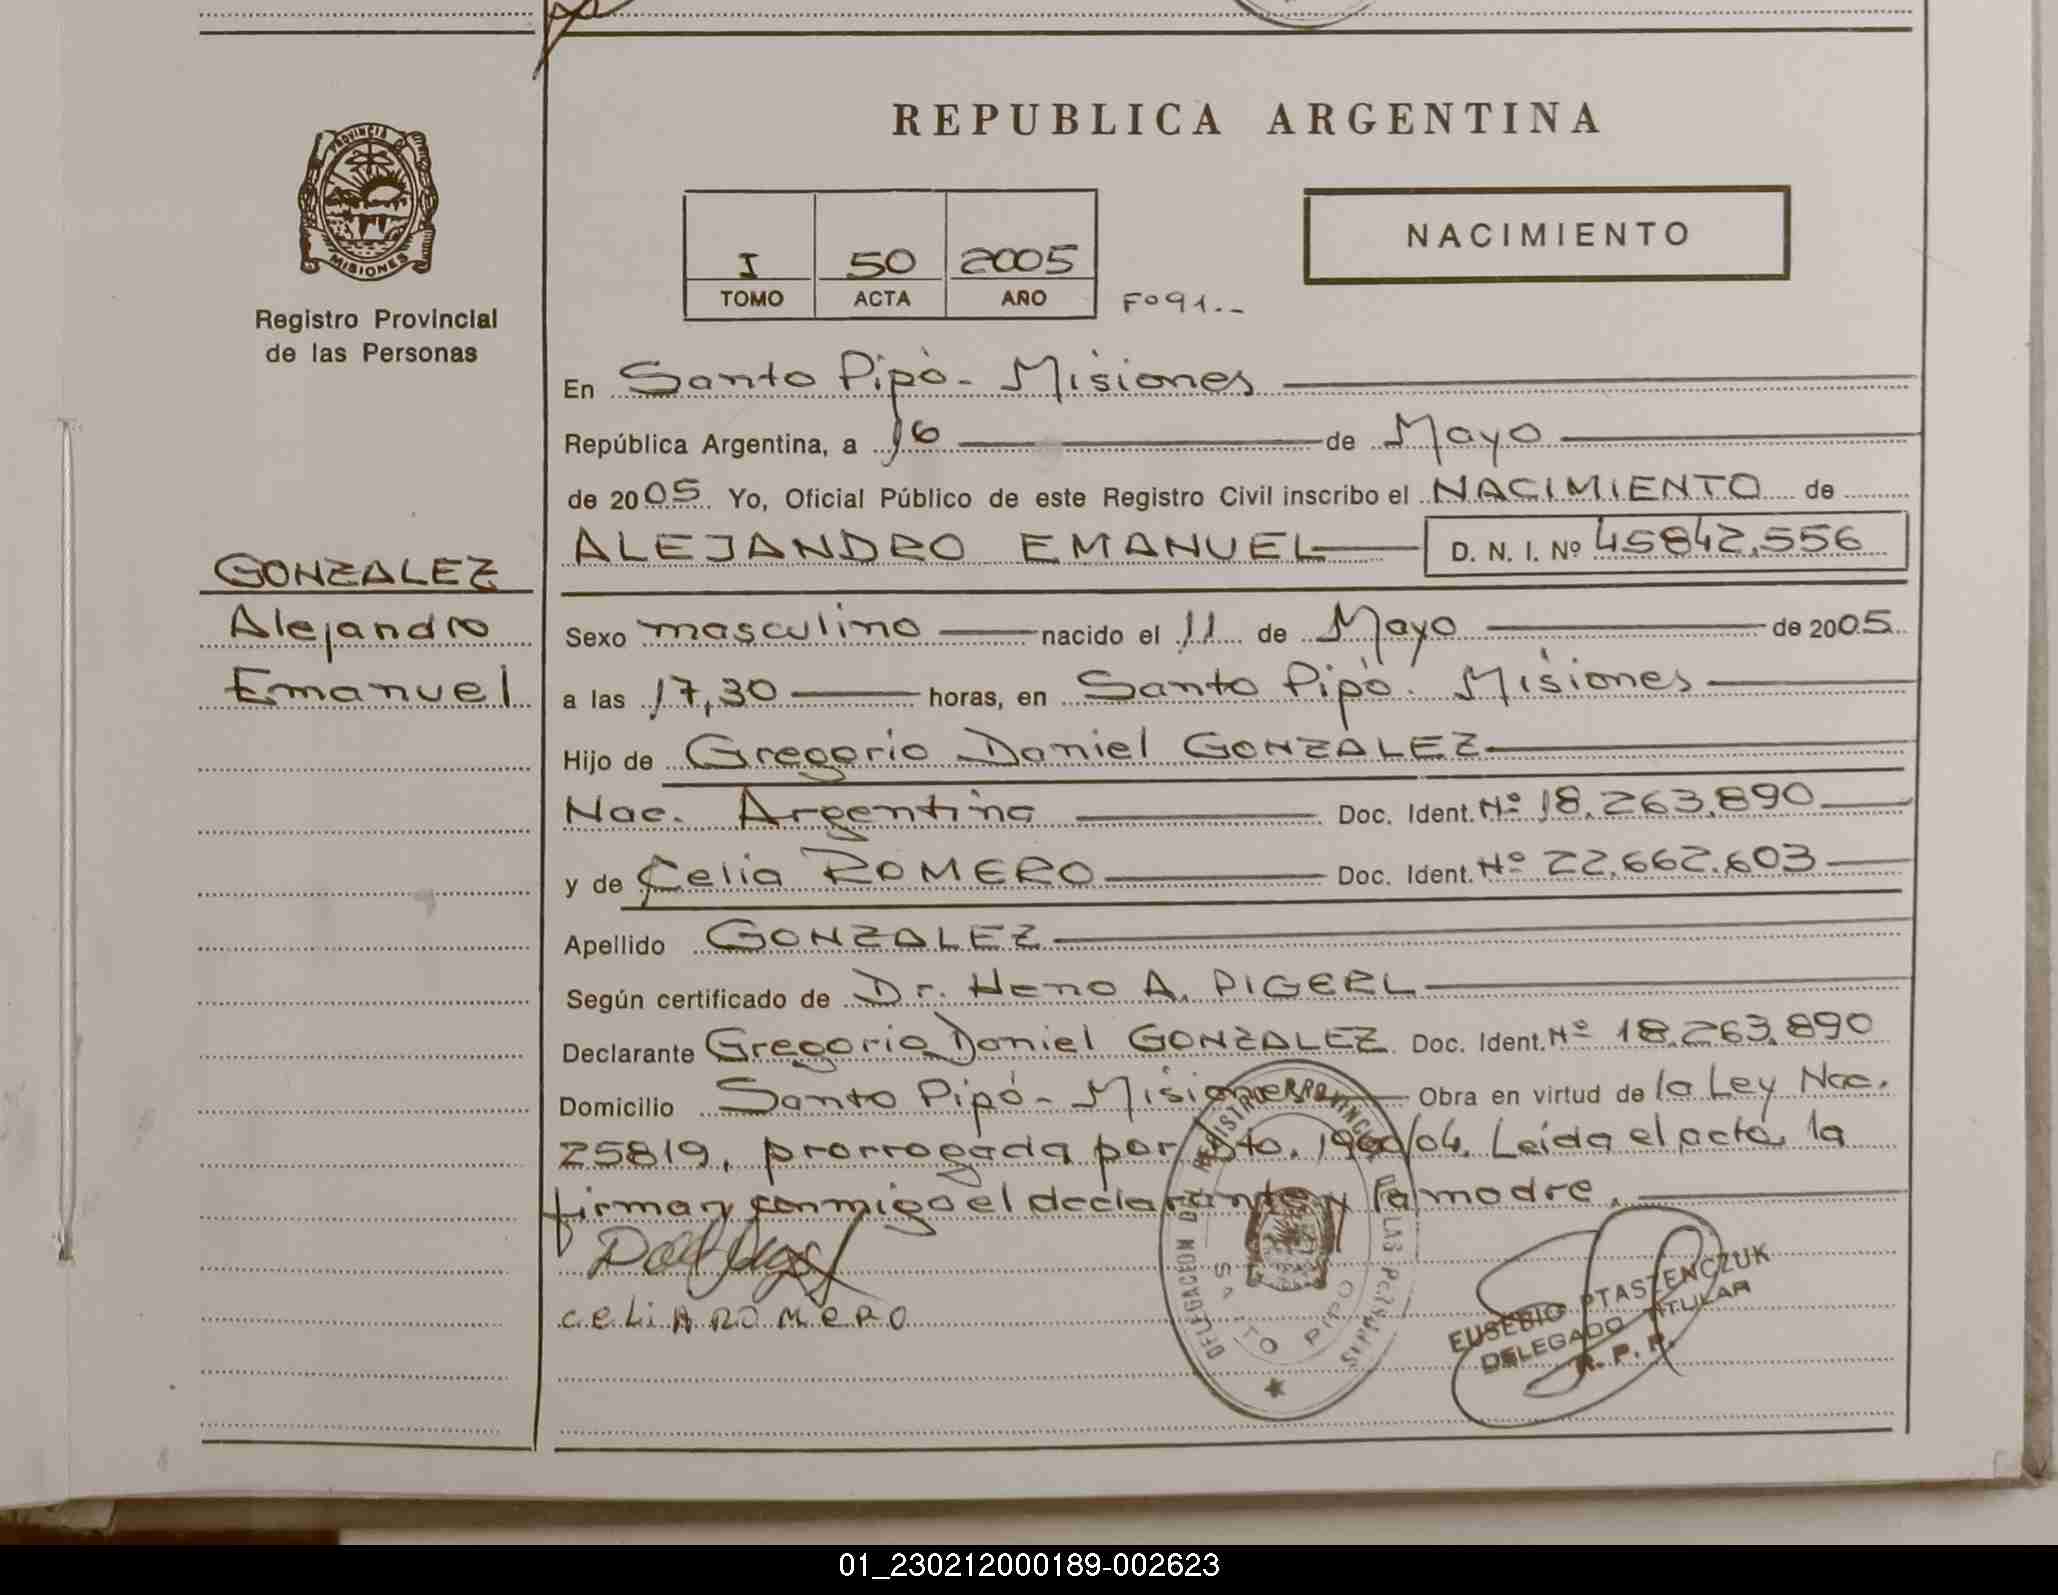 REPUBLICA ARGENTINA
PROVINCIA DE
MISIONES
Registro Provincial
de las Personas
I 50 2005
TOMO ACTA AÑO
Fº 91.-
NACIMIENTO
GONZALEZ
Alejandro
Emanuel
En Santo Pipó - Misiones
República Argentina, a 16 de Mayo
de 2005. Yo, Oficial Público de este Registro Civil inscribo el NACIMIENTO de
ALEJANDRO EMANUEL D. N. I. Nº 45842.556
Sexo masculino nacido el 11 de Mayo de 2005
a las 17,30 horas, en Santo Pipó. Misiones
Hijo de Gregorio Daniel GONZALEZ
Nac. Argentina Doc. Ident. Nº 18.263.890
y de Celia ROMERO Doc. Ident. Nº 22.662.603
Apellido GONZALEZ
Según certificado de Dr. A. PIGERL
Declarante Gregorio Daniel GONZALEZ Doc. Ident. Nº 18.263.890
Domicilio Santo Pipó - Misiones Obra en virtud de la Ley Nac.
25819, prorrogada por Dto. /04. Leída el acta, la
firman conmigo el declarante y la madre.
CELIA ROMERO
DELEGACION DEL REGISTRO PROVINCIAL DE LAS PERSONAS
SANTO PIPO
EUSEBIO PTASZENCZUK
DELEGADO TITULAR
R. P. P.
01_230212000189-002623